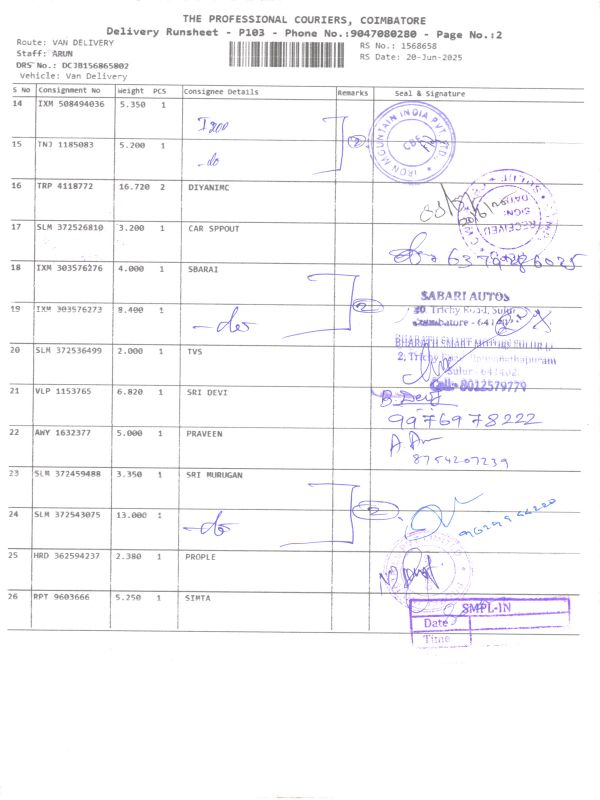 THE PROFESSIONAL COURIERS, COIMBATORE
Delivery Runsheet - P103 - Phone No.:9047080280 - Page No.:2
Route: VAN DELIVERY
RS No.: 1568658
Staff: ARUN
RS Date: 20-Jun-2025
DRS No.: DCJB156865802
Vehicle: Van Delivery
S No Consignment No Weight PCS Consignee Details Remarks Seal & Signature
14 IXM 508494036 5.350 1
IRON MOUNTAIN INDIA PVT LTD
CBE
15 TNJ 1185083 5.200 1 -do
2
16 TRP 4118772 16.720 2 DIYANIMC
RECEIVED
SIGN:
17 SLM 372526810 3.200 1 CAR SPPOUT
18 IXM 303576276 4.000 1 SBARAI
2
SABARI AUTOS
19 IXM 303576273 8.400 1 -do
Trichy Road, Sulur
Coimbatore - 641
20 SLM 372536499 2.000 1 TVS
BHARATH SMART MOTORS SULUR
2, Trichy
Sulur - 641402
Cell: 8012579779
21 VLP 1153765 6.820 1 SRI DEVI
B. Devi
9976978222
22 AWY 1632377 5.000 1 PRAVEEN
8754207239
23 SLM 372459488 3.350 1 SRI MURUGAN
2
24 SLM 372543075 13.000 1 -do
25 HRD 362594237 2.380 1 PROPLE
26 RPT 9603666 5.250 1 SIMTA
SMPL-IN
Date
Time